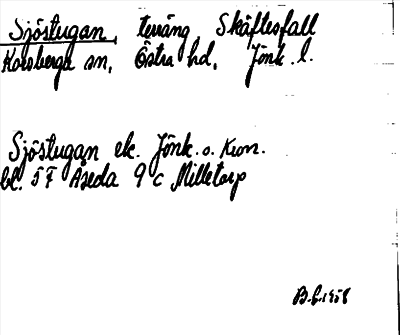 Sjöstugan, terräng Skäftesfall
Korsberga sn, Östra hd, Jönk. l.
Sjöstugan ek. Jönk. o. Kron.
bl. 57 Åseda 9 c Milletorp